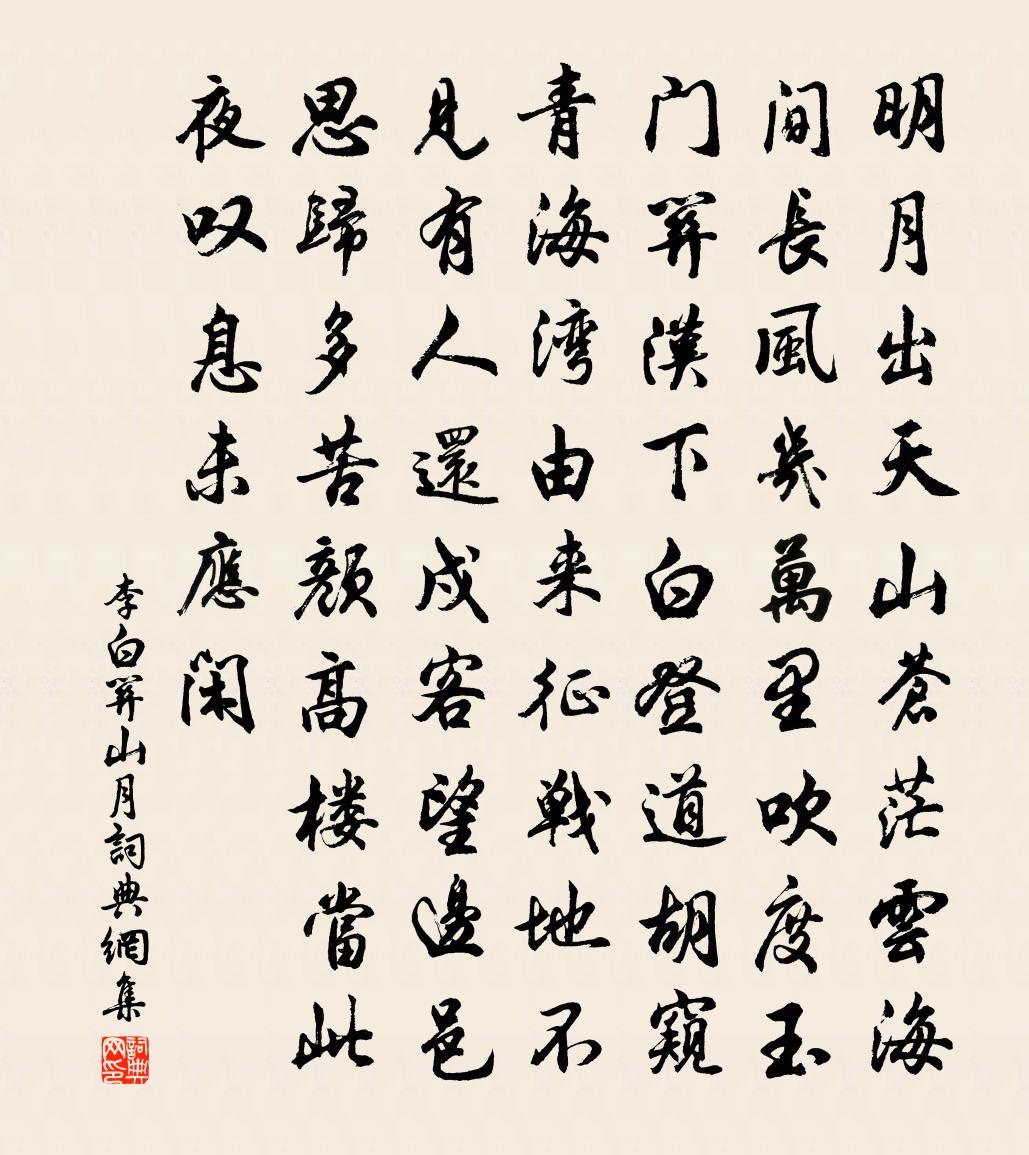 明月出天山蒼茫雲海
间長風幾萬里吹度玉
门関漢下白登道胡窺
青海湾由来征戦地不
見有人還戍客望邊邑
思歸多苦顔高楼當此
夜叹息未應闲
李白関山月詞典網集
詞典网印